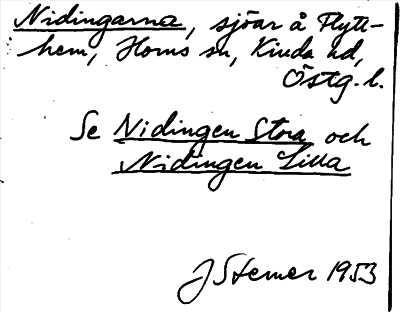 Nidingarna, sjöar å Flytt-
hem, Horns sn, Kinda hd,
Östg. l.
Se Nidingen Stora och
Nidingen Lilla
J Stemer 1953